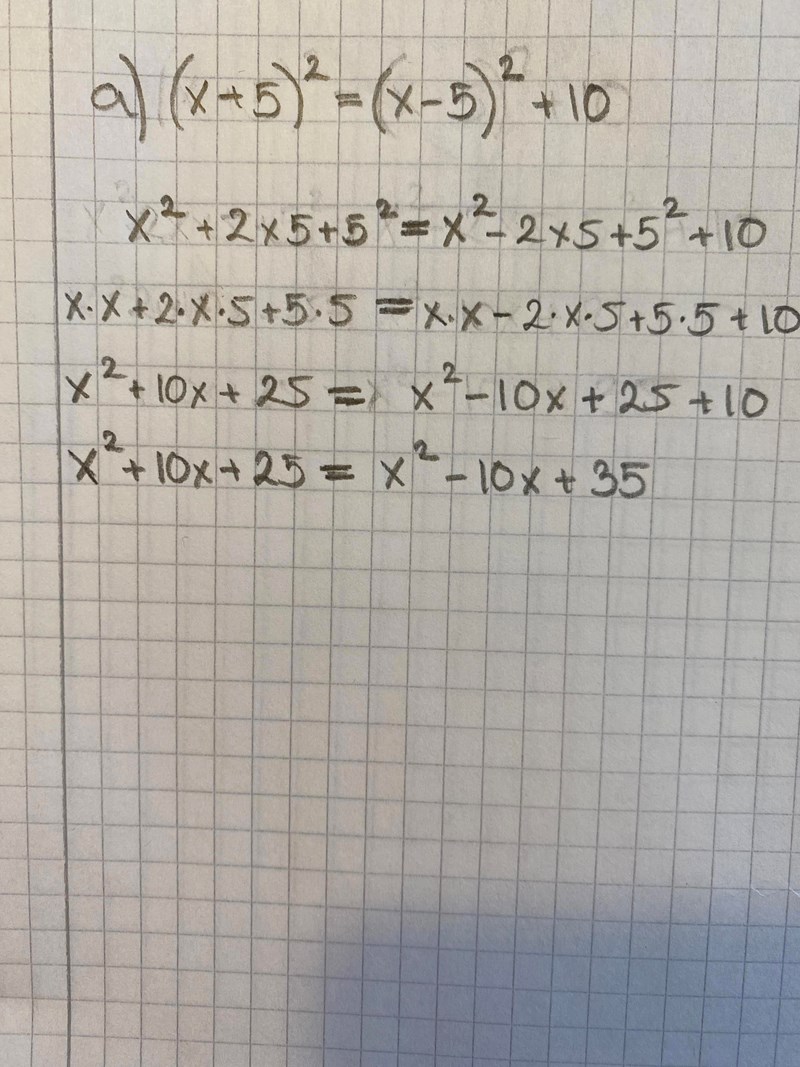 a) (x+5)² = (x-5)² + 10
x² + 2x5 + 5² = x² - 2x5 + 5² + 10
x·x + 2·x·5 + 5·5 = x·x - 2·x·5 + 5·5 + 10
x² + 10x + 25 = x² - 10x + 25 + 10
x² + 10x + 25 = x² - 10x + 35